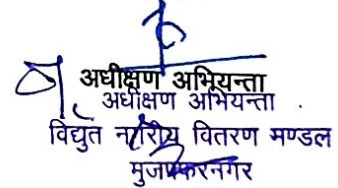 अधीक्षण अभियन्ता
अधीक्षण अभियन्ता
विद्युत नगरीय वितरण मण्डल
मुजफ्फरनगर